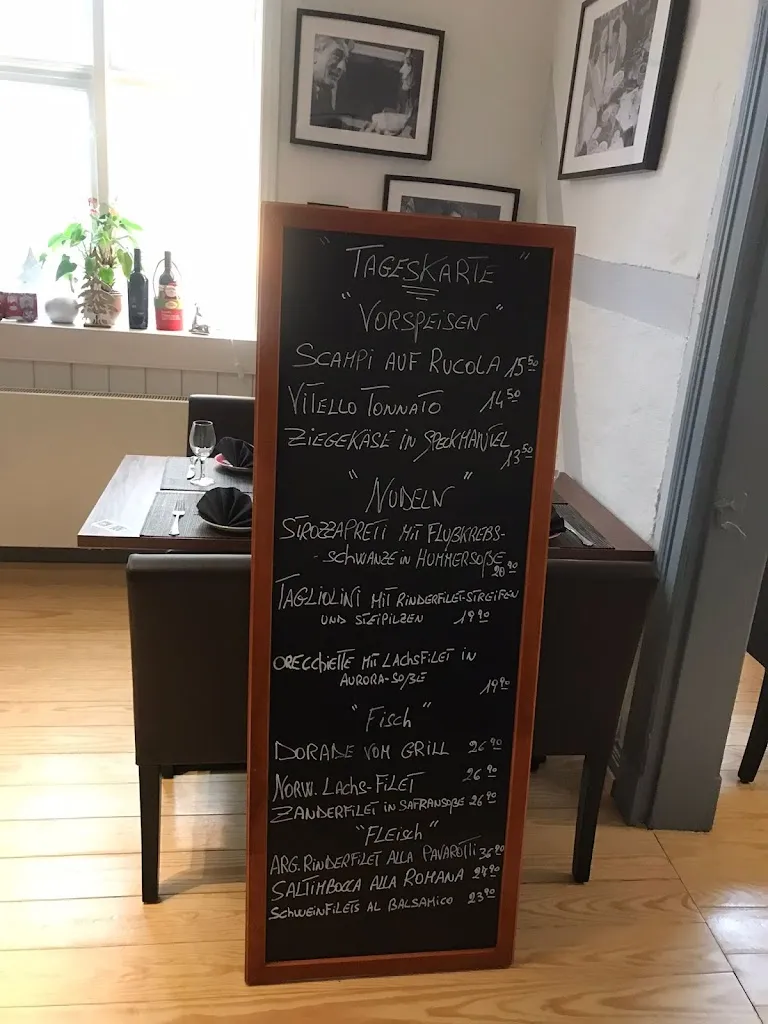 " TAGESKARTE "
" VORSPEISEN "
SCAMPI AUF RUCOLA 15 50
VITELLO TONNATO 14 50
ZIEGEKÄSE IN SPECKMANTEL
13 50
" NUDELN "
STROZZAPRETI MIT FLUßKREBS-
-SCHWÄNZE IN HUMMERSOßE
20 90
TAGLIOLINI MIT RINDERFILET-STREIFEN
UND STEIPILZEN 19 90
ORECCHIETTE MIT LACHSFILET IN
AURORA-SOßE
19 90
" FISCH "
DORADE VOM GRILL 26 90
NORW. LACHS-FILET 26 90
ZANDERFILET IN SAFRANSOßE 26 90
"FLEISCH"
ARG. RINDERFILET ALLA PAVAROTTI 36 90
SALTIMBOCCA ALLA ROMANA 24 90
SCHWEINFILETS AL BALSAMICO 23 90